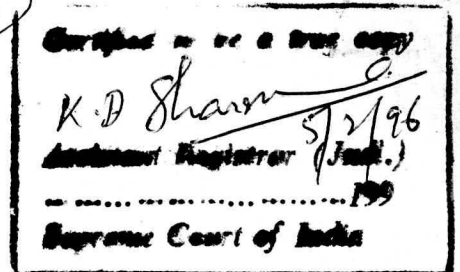 Certified to be a true copy
K.D Sharma
5/2/96
Assistant Registrar (Judl.)
.......................199
Supreme Court of India